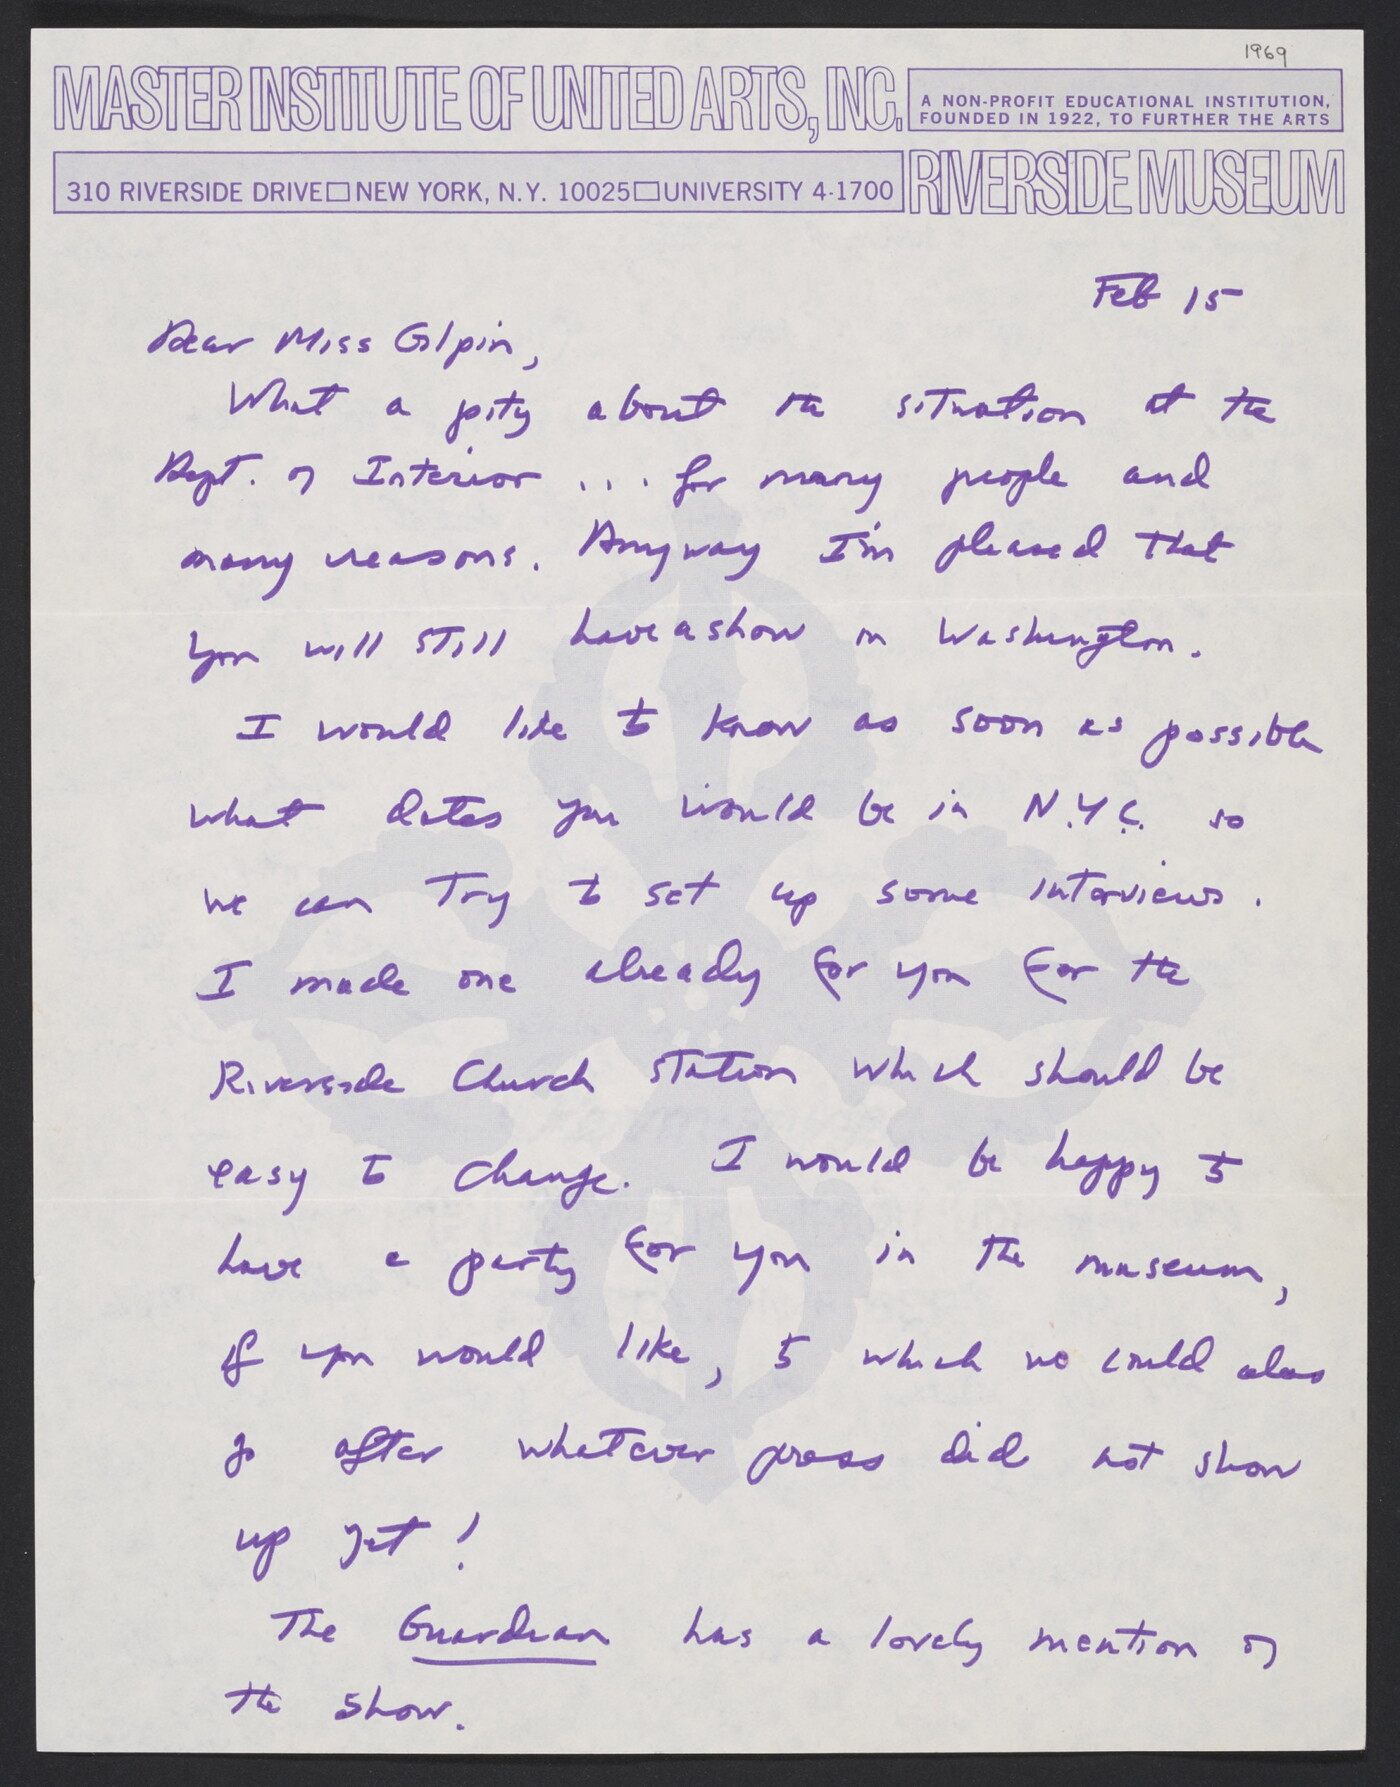 1969
MASTER INSTITUTE OF UNITED ARTS, INC.
A NON-PROFIT EDUCATIONAL INSTITUTION,
FOUNDED IN 1922, TO FURTHER THE ARTS
310 RIVERSIDE DRIVE□NEW YORK, N.Y. 10025□UNIVERSITY 4-1700
RIVERSIDE MUSEUM
Feb 15
Dear Miss Gilpin,
What a pity about the situation at the
Dept. of Interior ... for many people and
many reasons. Anyway I'm pleased that
you will still have a show in Washington.
I would like to know as soon as possible
what dates you would be in N.Y.C. so
we can try to set up some interviews.
I made one already for you for the
Riverside Church station which should be
easy to change. I would be happy to
have a party for you in the museum,
if you would like, to which we could also
go after whatever press did not show
up yet!
The Guardian has a lovely mention of
the show.